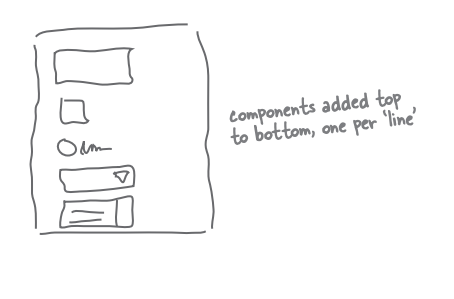 components added top
to bottom, one per 'line'